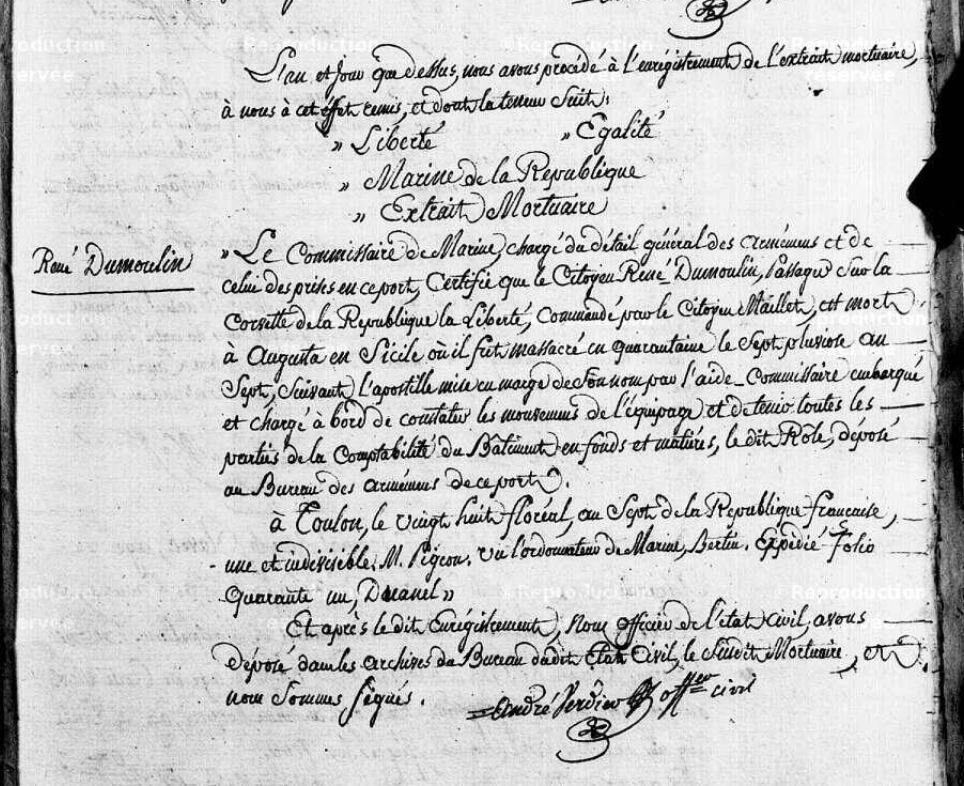 L'an et Jour que dessus, nous avons procédé à l'enrégistrement de l'extrait mortuaire,
à nous à cet éffet remis, et dont la teneur Suit:
» Liberté » Egalité
» Marine de la Republique
» Extrait Mortuaire
René Dumoulin
» Le Commissaire de Marine, chargé du détail général des armémens et de
celui des prises en ce port, Certifie que le Citoyen René Dumoulin, Passager Sur la
Corvette de la Republique la Liberté, Commandé par le Citoyen Maillet, est mort
à Augusta en Sicile où il fut massacré en quarantaine le Sept pluviose an
Sept, Suivant l'apostille mise en marge de Son nom par l'aide-Commissaire embarqué
et chargé à bord de constater les mouvemens de l'équipage et de tenir toutes les
parties de la Comptabilité du Bâtiment en fonds et matières, le dit Rôle, déposé
au Bureau des armémens de ce port.
à Toulon, le vingt huit floréal, an Sept de la Republique francaise,
une et indivisible, M. Pigeon. Vu l'ordonnateur de Marine, Bertin. Expédié folio
Quarante un,
Et après le dit Enrégistrement, Nous officier de l'état civil, avons
déposé dans les archives du Bureau du dit Etat Civil, le Susdit Mortuaire, et
nous Sommes Signés. André Verdier off.er civil
Reproduction
réservée